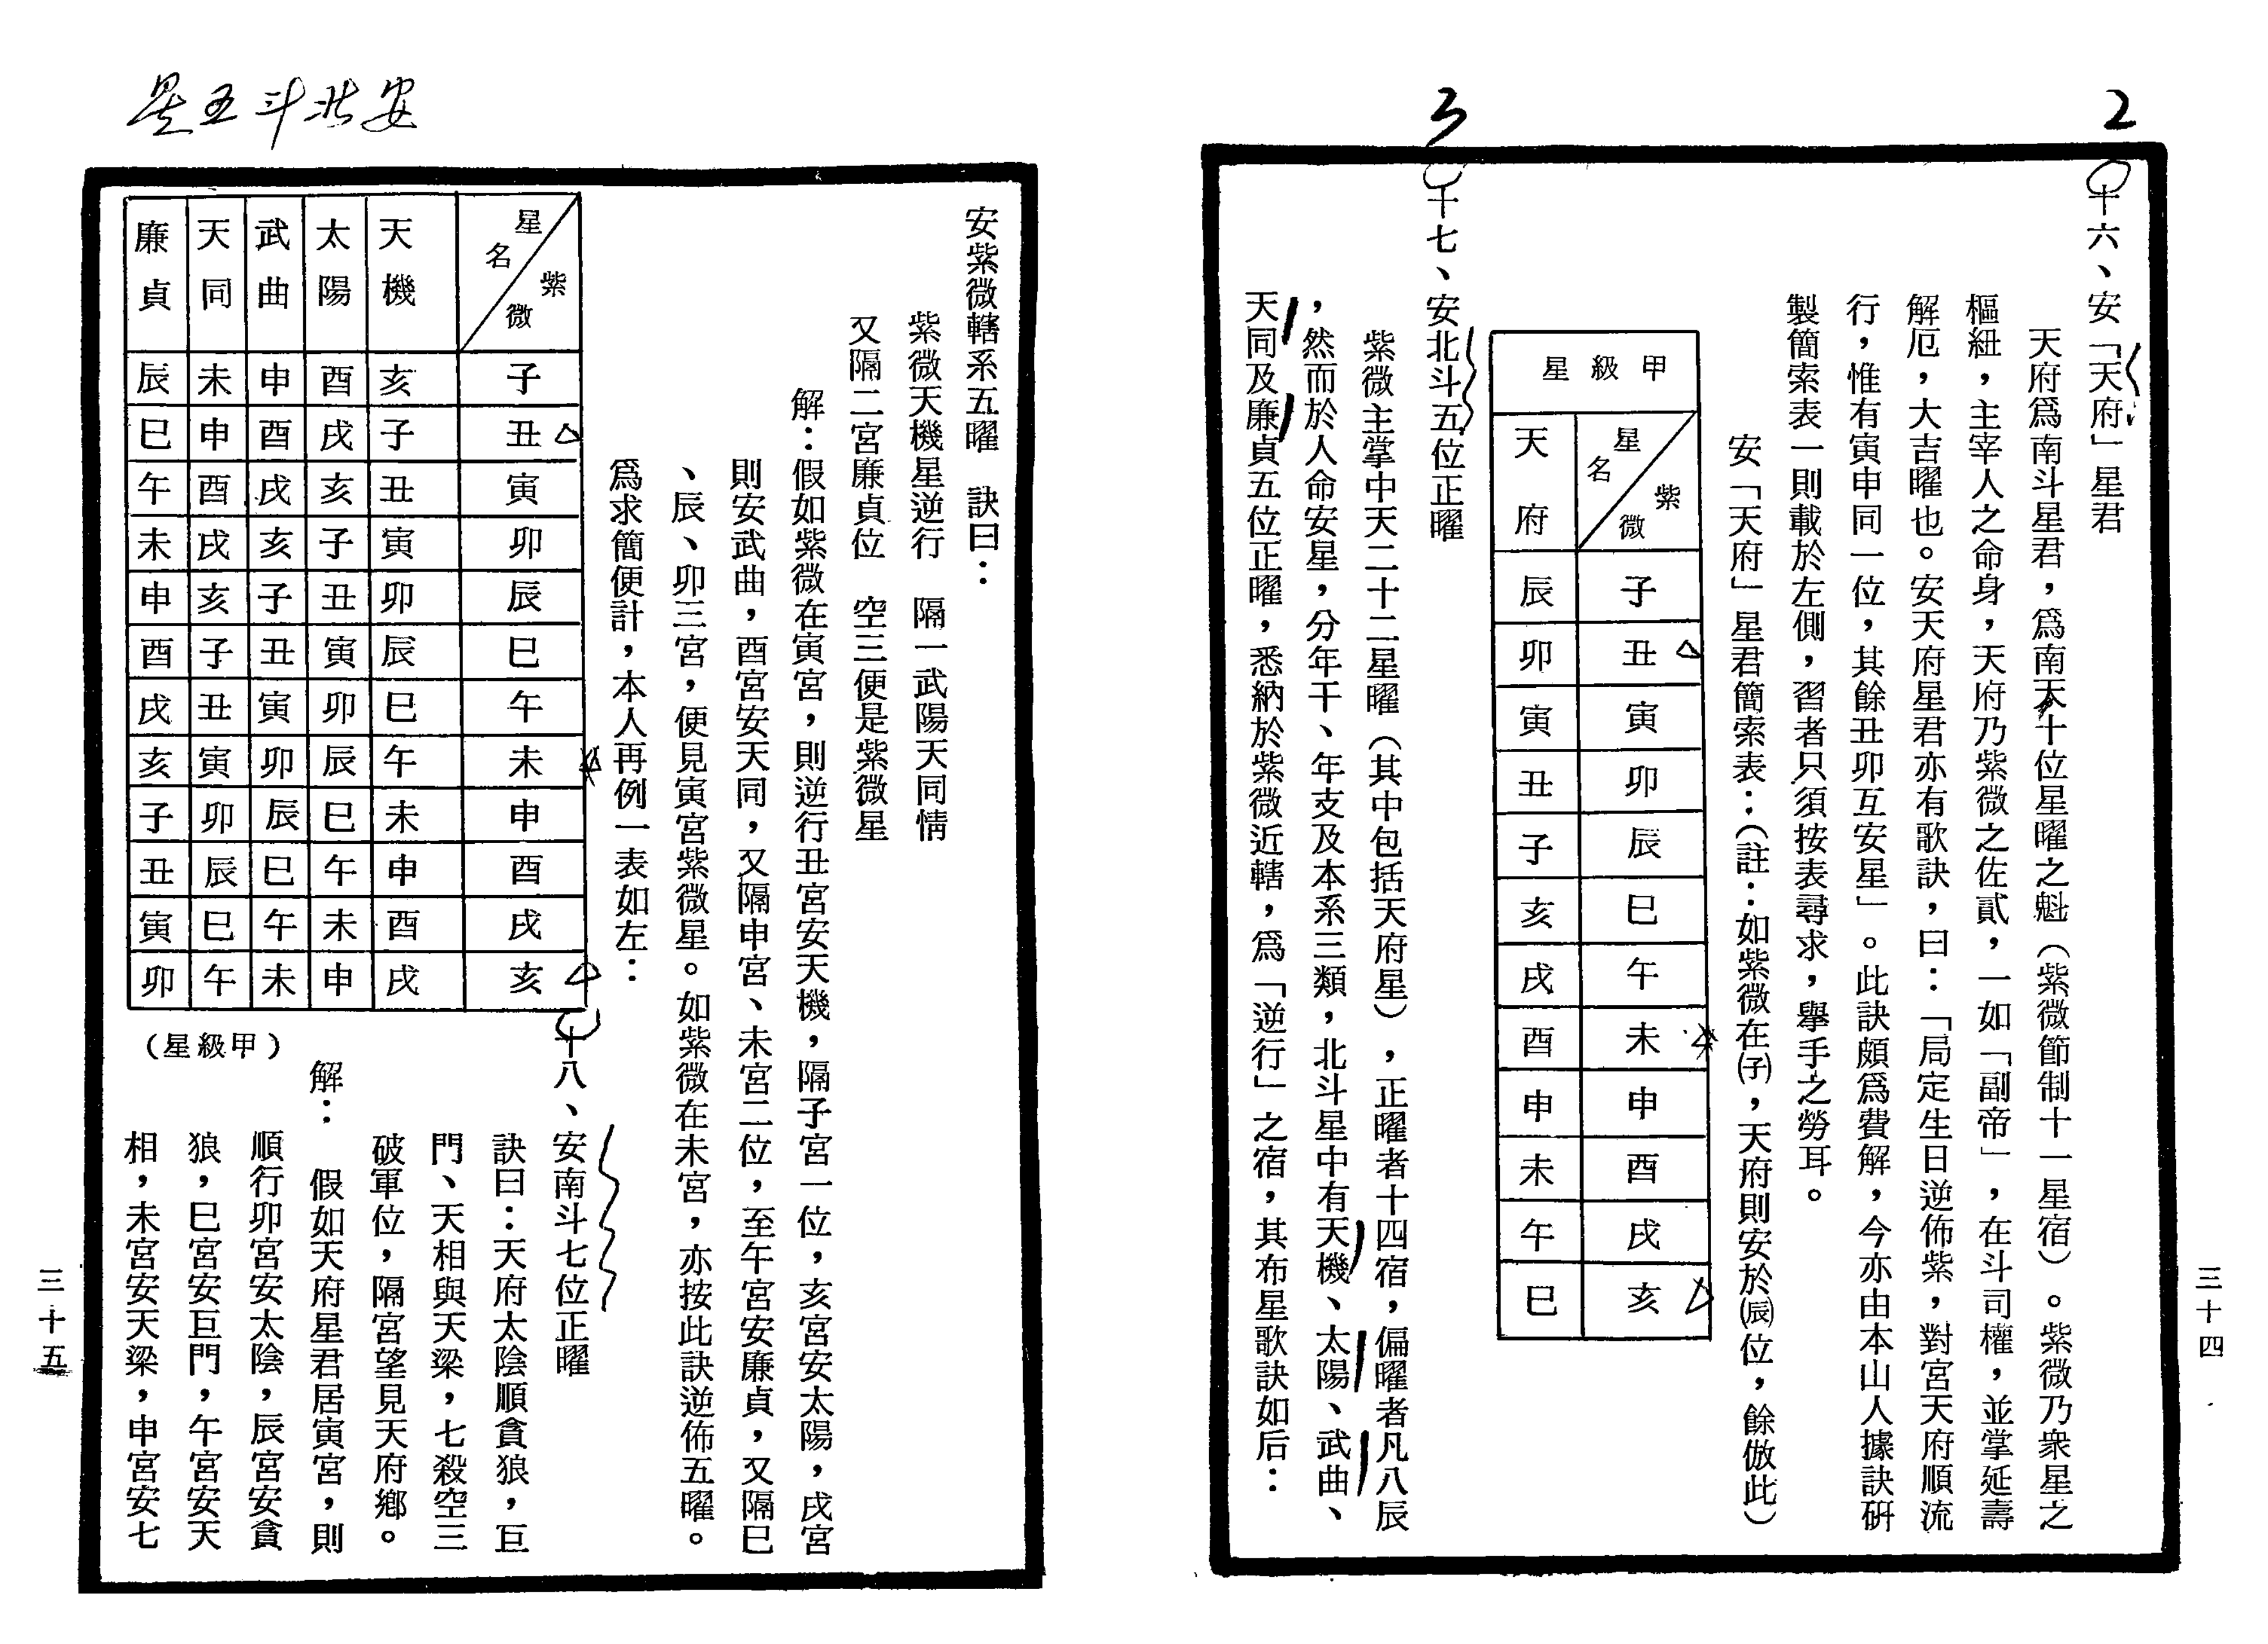 2
十六、安「天府」星君
天府爲南斗星君，爲南天十位星曜之魁（紫微節制十一星宿）。紫微乃衆星之
樞紐，主宰人之命身，天府乃紫微之佐貳，一如「副帝」，在斗司權，並掌延壽
解厄，大吉曜也。安天府星君亦有歌訣，曰：「局定生日逆佈紫，對宮天府順流
行，惟有寅申同一位，其餘丑卯互安星」。此訣頗爲費解，今亦由本山人據訣硏
製簡索表一則載於左側，習者只須按表尋求，舉手之勞耳。
安「天府」星君簡索表：（註：如紫微在㈩子，天府則安於(辰)位，餘倣此）
甲級星
星名 紫微 子 丑 寅 卯 辰 巳 午 未 申 酉 戌 亥
天府 辰 卯 寅 丑 子 亥 戌 酉 申 未 午 巳
3
十七、安北斗五位正曜
紫微主掌中天二十二星曜（其中包括天府星），正曜者十四宿，偏曜者凡八辰
，然而於人命安星，分年干、年支及本系三類，北斗星中有天機、太陽、武曲、
天同及廉貞五位正曜，悉納於紫微近轄，爲「逆行」之宿，其布星歌訣如后：
三十四
安北斗五星
安紫微轄系五曜　訣曰：
紫微天機星逆行　隔一武陽天同情
又隔二宮廉貞位　空三便是紫微星
解：假如紫微在寅宮，則逆行丑宮安天機，隔子宮一位，亥宮安太陽，戌宮
則安武曲，酉宮安天同，又隔申宮、未宮二位，至午宮安廉貞，又隔巳
、辰、卯三宮，便見寅宮紫微星。如紫微在未宮，亦按此訣逆佈五曜。
爲求簡便計，本人再例一表如左：
星名 紫微 子 丑 寅 卯 辰 巳 午 未 申 酉 戌 亥
天機 亥 子 丑 寅 卯 辰 巳 午 未 申 酉 戌
太陽 酉 戌 亥 子 丑 寅 卯 辰 巳 午 未 申
武曲 申 酉 戌 亥 子 丑 寅 卯 辰 巳 午 未
天同 未 申 酉 戌 亥 子 丑 寅 卯 辰 巳 午
廉貞 辰 巳 午 未 申 酉 戌 亥 子 丑 寅 卯
（甲級星）
十八、安南斗七位正曜
訣曰：天府太陰順貪狼，巨
門、天相與天梁，七殺空三
破軍位，隔宮望見天府鄉。
解：　假如天府星君居寅宮，則
順行卯宮安太陰，辰宮安貪
狼，巳宮安巨門，午宮安天
相，未宮安天梁，申宮安七
三十五